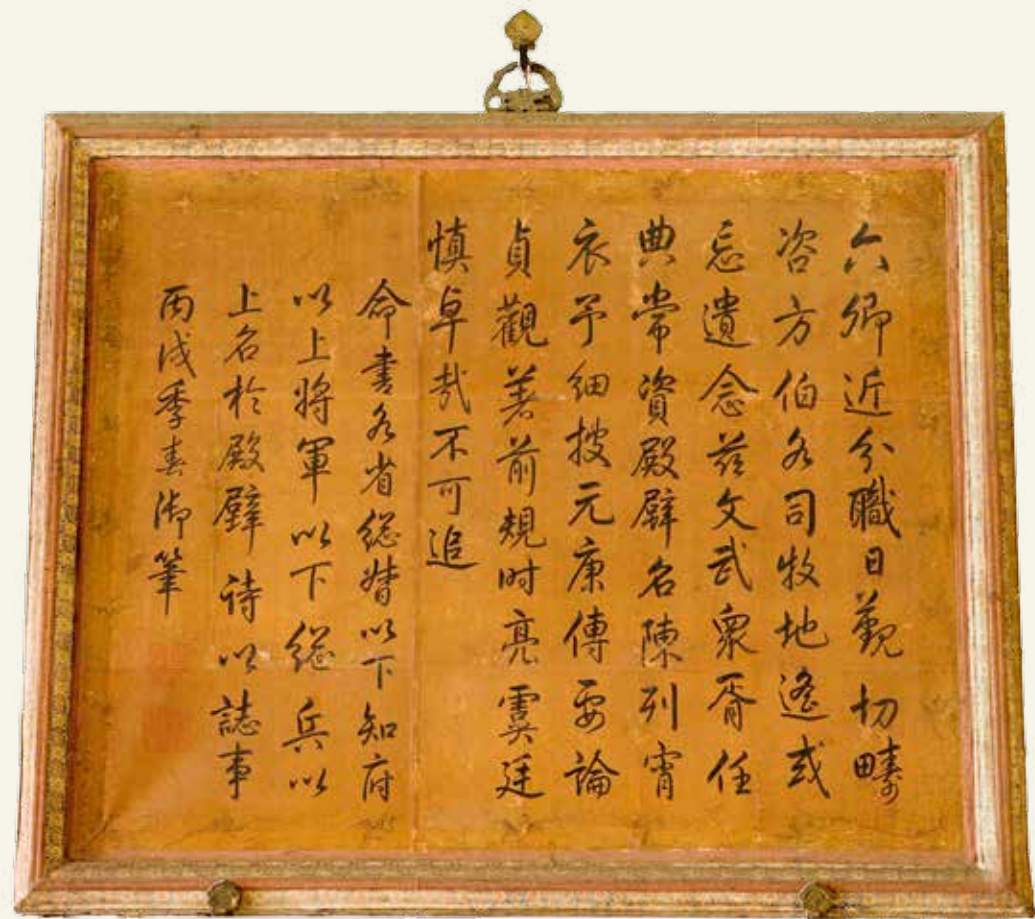 六卿近分職日覲切疇
咨方伯各司牧地遙或
忘遺念茲文武衆胥任
典常資殿壁名陳列宵
衣予細披元康傳要論
貞觀著前規時亮虞廷
慎卓哉不可追
命書各省總督以下知府
以上將軍以下總兵以
上名於殿壁詩以誌事
丙戌季春御筆